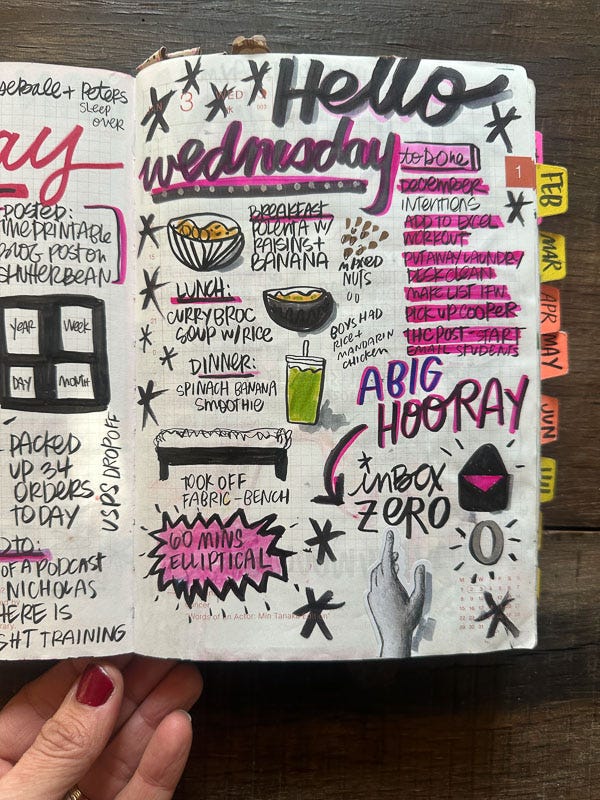 + Peters
SLEEP
OVER
ay
POSTED:
PRINTABLE
BLOG POST ON
SHUTTERBEAN
YEAR
WEEK
DAY
MONTH
PACKED
UP 34
ORDERS
TODAY
USPS DROP OFF
OF A PODCAST
NICHOLAS
HERE IS
SHT TRAINING
3
WED
003
Hello
wednesday
BREAKFAST
POLENTA W/
RAISINS +
BANANA
MIXED
NUTS
LUNCH:
CURRY BROC
SOUP W/RICE
BOYS HAD
RICE +
MANDARIN
CHICKEN
DINNER:
SPINACH BANANA
SMOOTHIE
TOOK OFF
FABRIC - BENCH
60 MINS
ELLIPTICAL
to DONE
DECEMBER
INTENTIONS
ADD TO EXCEL
WORKOUT
PUT AWAY LAUNDRY
DESK CLEAN
MAKE LIST IFW
PICK UP COOPER
THC POST - START
EMAIL STUDENTS
A BIG
HOORAY
inBOX
ZERO
0
Words of an Actor: Min Tanaka
1
FEB
MAR
APR
MAY
JUN